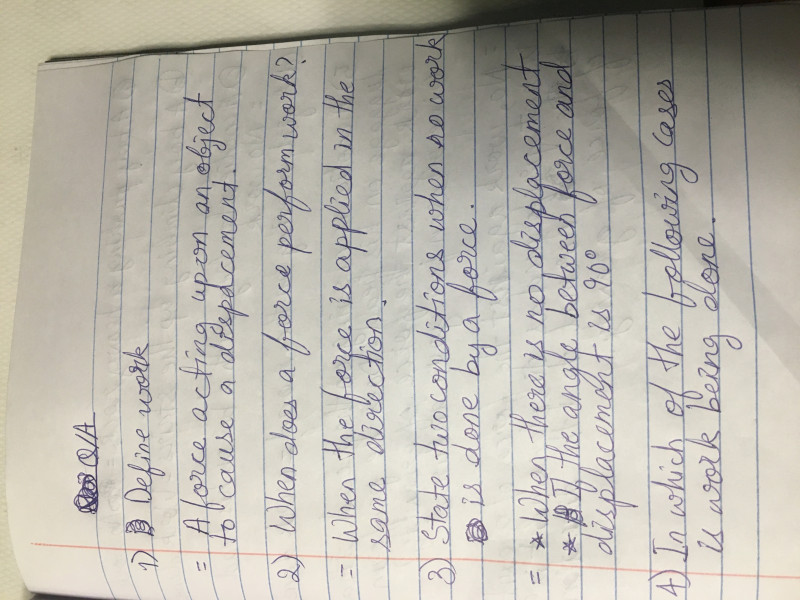 Q/A
1) Define work
= A force acting upon an object
to cause a displacement.
2) When does a force perform work?
= When the force is applied in the
same direction.
3) State two conditions when no work
is done by a force.
= * When there is no displacement
* If the angle between force and
displacement is 90°
4) In which of the following cases
is work being done.